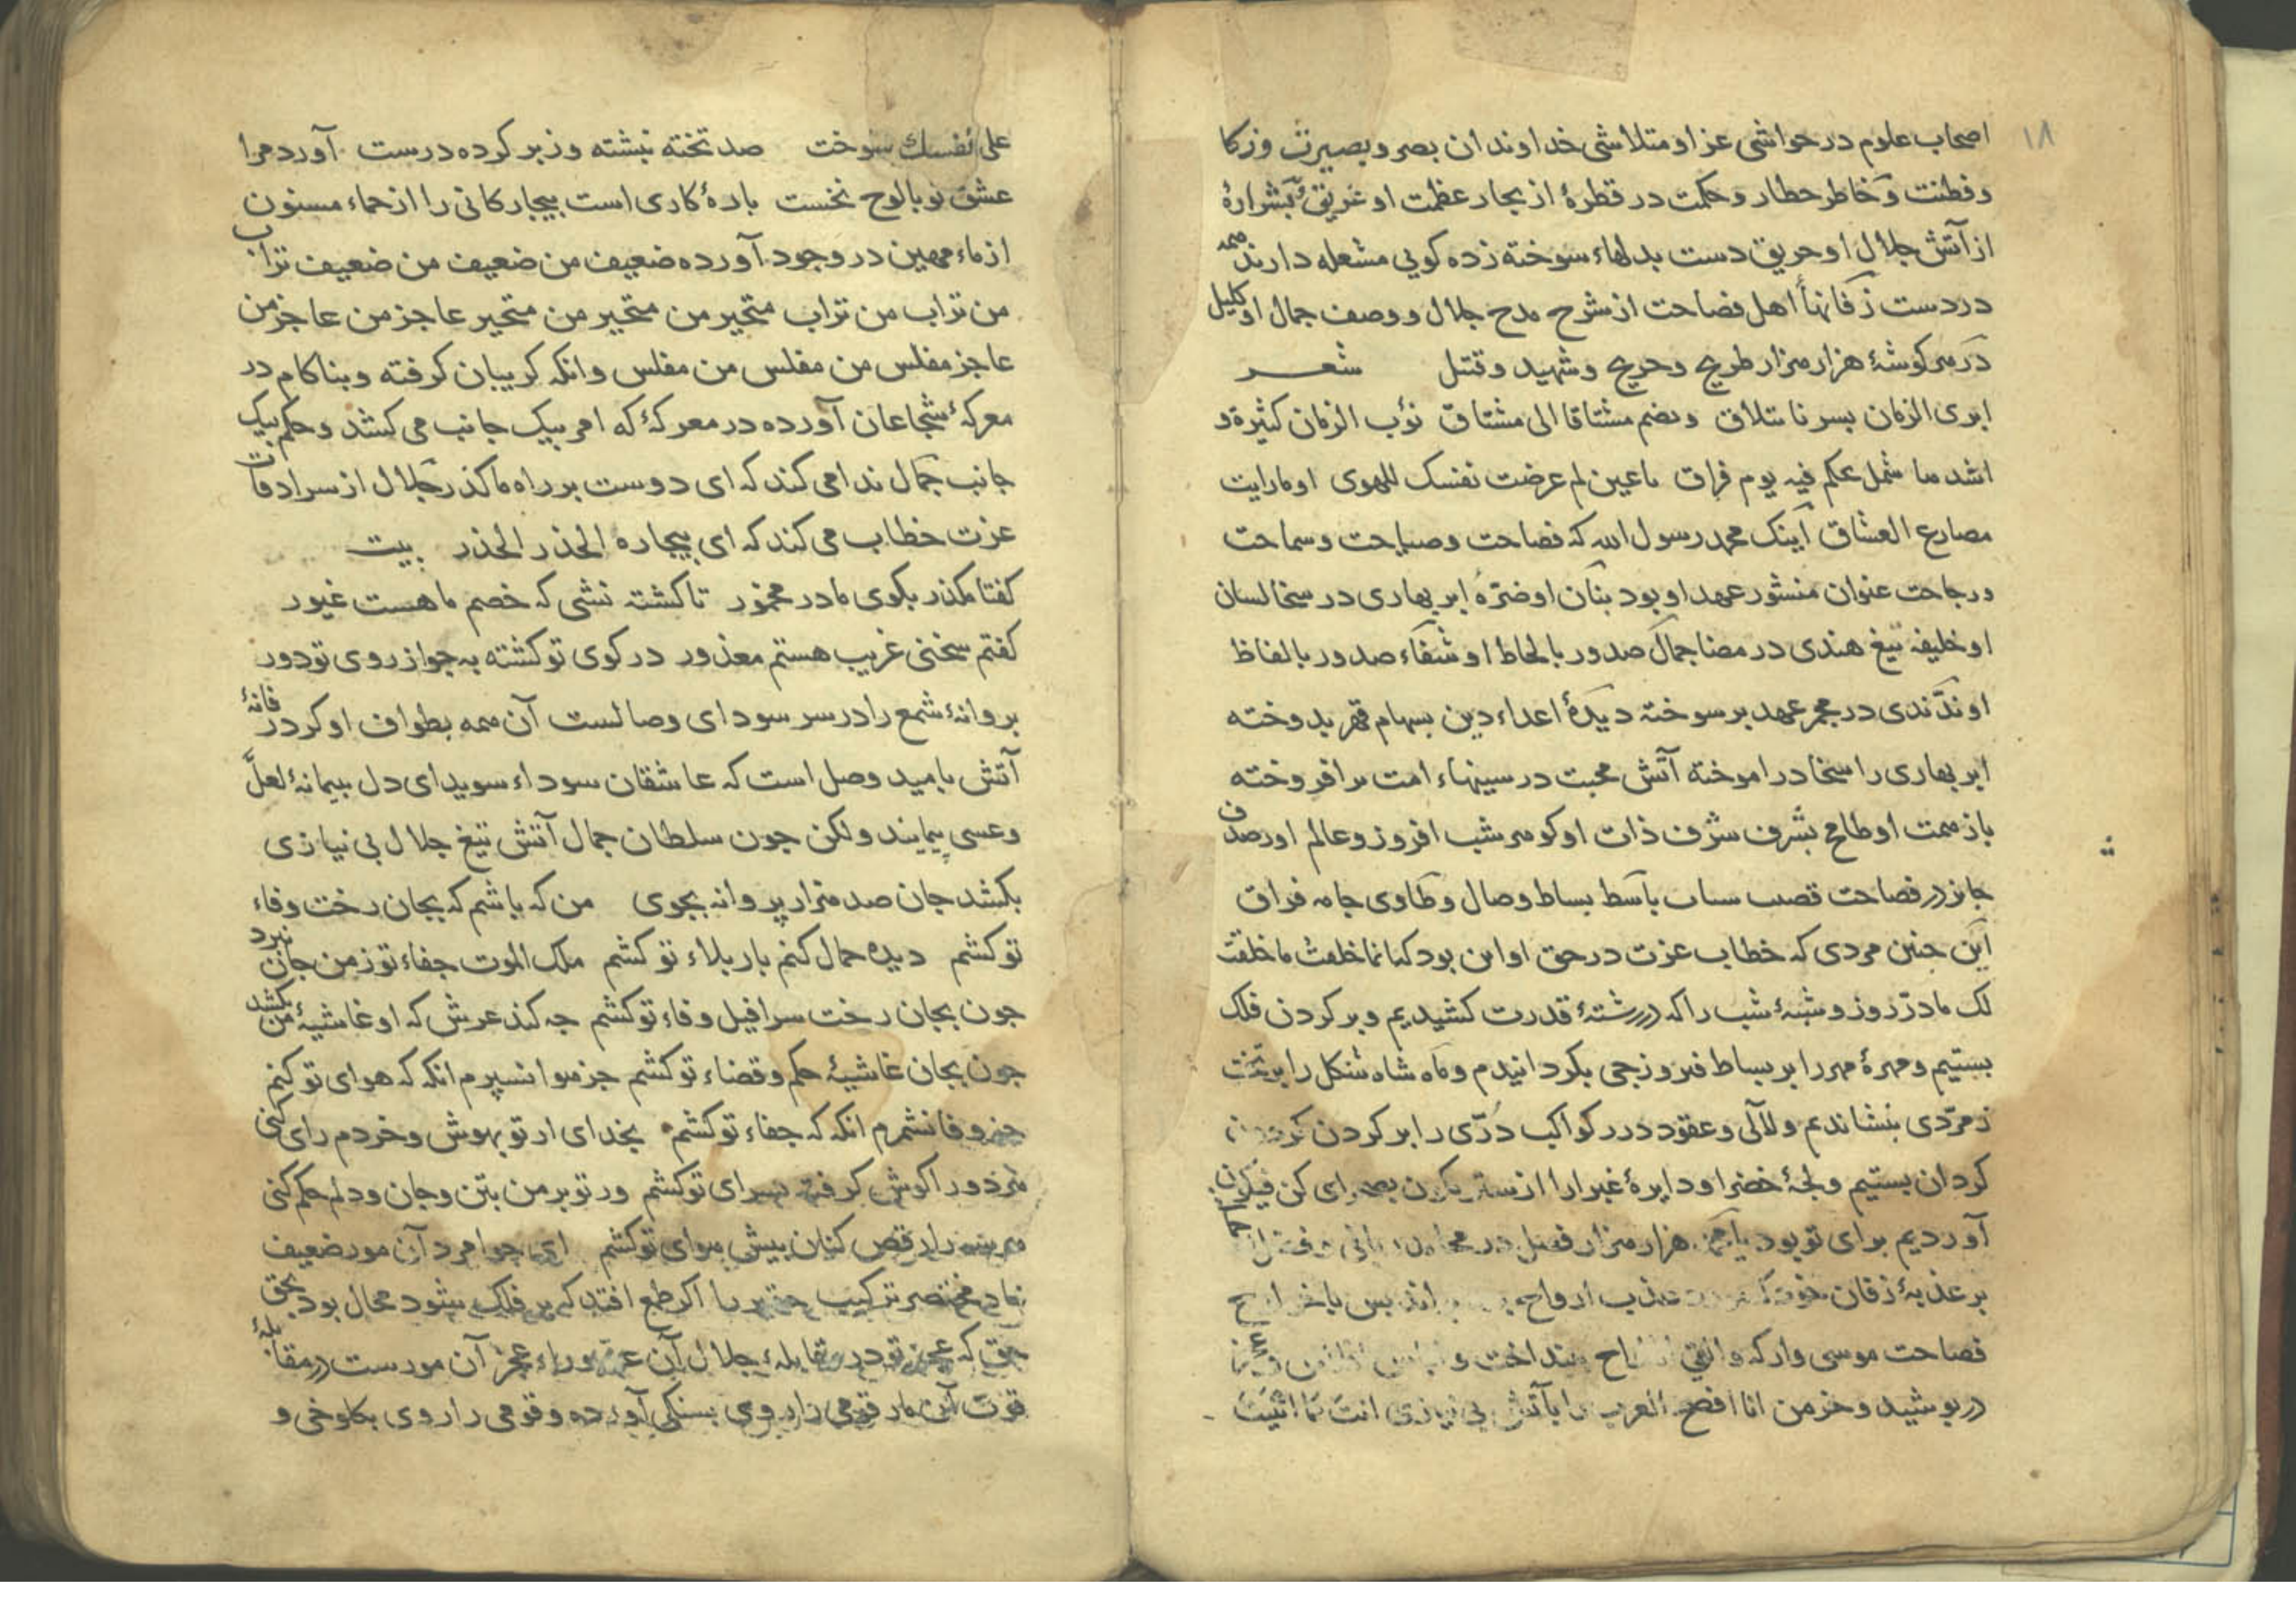 ١٨
اصحاب علوم در حواشی عز او متلاشی خداوندان بصر و بصیرت و زکا
و فطنت و خاطر خطار و حکمت در قطرهٔ از بحار عظمت او غریق بشرارهٔ
از آتش جلال او حریق دست بدلهاء سوخته زده کویی مشعله دارند همه
در دست زفانهاء اهل فصاحت از شرح مدح جلال و وصف جمال او کلیل
در هر کوشهٔ هزار هزار طریح و جریح و شهید و قتیل شعر
ابری الزمان بسرنا بتلاق ویضم مشتاقا الی مشتاق نوب الزمان کثیرة و
اشدها شمل عکم فیه یوم فراق یا عین لم عرضت نفسک للهوی او ما رایت
مصارع العشاق اینک محمد رسول الله که فصاحت و صباحت و سماحت
و رجاحت عنوان منشور عهد او بود بنان او ضرهٔ ابر بهاری در سخا لسان
او خلیفه تیغ هندی در مضا جمال صدور بالحاظ او شفاء صدور بالفاظ
او ند ندی در مجمر عهد بر سوخته دیدهٔ اعداء دین بسهام قهر بدوخته
ابر بهاری را سخا در اموخته آتش محبت در سینهاء امت برافروخته
باز همت او طامح بشرف شرف ذات او کوهر شب افروز و عالم او را صدف
جانور در فصاحت قصب باسط بساط وصال و طاوی جامه فراق
این چنین مردی که خطاب عزت در حق او این بود کیانما خلقت ما خلقت
لک ما درّ روز و شبهٔ شب را که در رشتهٔ قدرت کشیدیم و بر کردن فلک
بستیم و مهرهٔ مهر را بر بساط فیروزجی بکردانیدم و ماه شاه شکل را بر تخت
زمرّدی بنشاندیم و لآلی و عقود درر کواکب درّی را بر کردن
کردان بستیم و لجهٔ خضرا و دایرهٔ غبرا را از بصحرای کن فیکون
آوردیم برای تو بود با هزار هزار فضل در و فضل
بر عذبهٔ زفان ارواح پس
فصاحت موسی وار که والقی بینداخت و
در پوشید و خرمن انا افصح العرب را بآتش بی نیازی انت کما اثنیت
علی نفسک سوخت صد تخته نبشته و زبر کرده درست آورد مرا
عشق تو با لوح نخست باره کاری است بیچارکانی را از حماء مسنون
از ماء مهین در وجود آورده ضعیف من ضعیف من ضعیف تراب
من تراب من تراب متحیر من متحیر من متحیر عاجز من عاجز من
عاجز مفلس من مفلس من مفلس وانکه کریبان کرفته و بناکام در
معرکهٔ شجاعان آورده در معرکهٔ که امر بیک جانب می کشد و حکم بیک
جانب جمال ندا می کند که ای دوست بر راه ما کذر جلال از سرادقات
عزت خطاب می کند که ای بیچاره الحذر الحذر بیت
کفتا مکذر بکوی ما در مخمور تا کشته نشی که خصم ما هست غیور
کفتم سخنی غریب هستم معذور در کوی تو کشته به جو از روی تو دور
بروانهٔ شمع را در سر سودای وصالست آن همه بطواف او کرد در
آتش بامید وصل است که عاشقان سوداء سویدای دل بپیمانهٔ لعلّ
و عسی پیمایند ولکن جون سلطان جمال آتش تیغ جلال بی نیازی
بکشد جان صد هزار پروانه بجوی من که باشم که بجان رخت وفاء
تو کشم دیده حمال کنم بار بلاء تو کشم ملک الموت جفاء تو ز من جان نبرد
جون بجان رخت سرافیل وفاء تو کشم جه کند عرش که او غاشیهٔ من بکشد
جون بجان غاشیهٔ حکم و قضاء تو کشم جز هوا نسپرم انکه که هوای تو کنم
جز وفا نشمرم انکه که جفاء تو کشم بخدای ار تو بهوش و خردم رای کنی
هر دو را کوش کرفته بسرای تو کشم ور تو بر من بتن و جان و دلم حکم کنی
هر سه را رقص کنان پیش هوای تو کشم ای جوامرد آن مور ضعیف
نهاد مختصر ترکیب حقیر را اکر طمع افتد که بر فلک شود محال بود بحق
حق که عجز تو در مقابلهٔ جلال آن وراء عجز آن مورست در مقابلهٔ
قوت آن مار قومی را روی بسنکی آورده و قومی را روی بکلوخی و